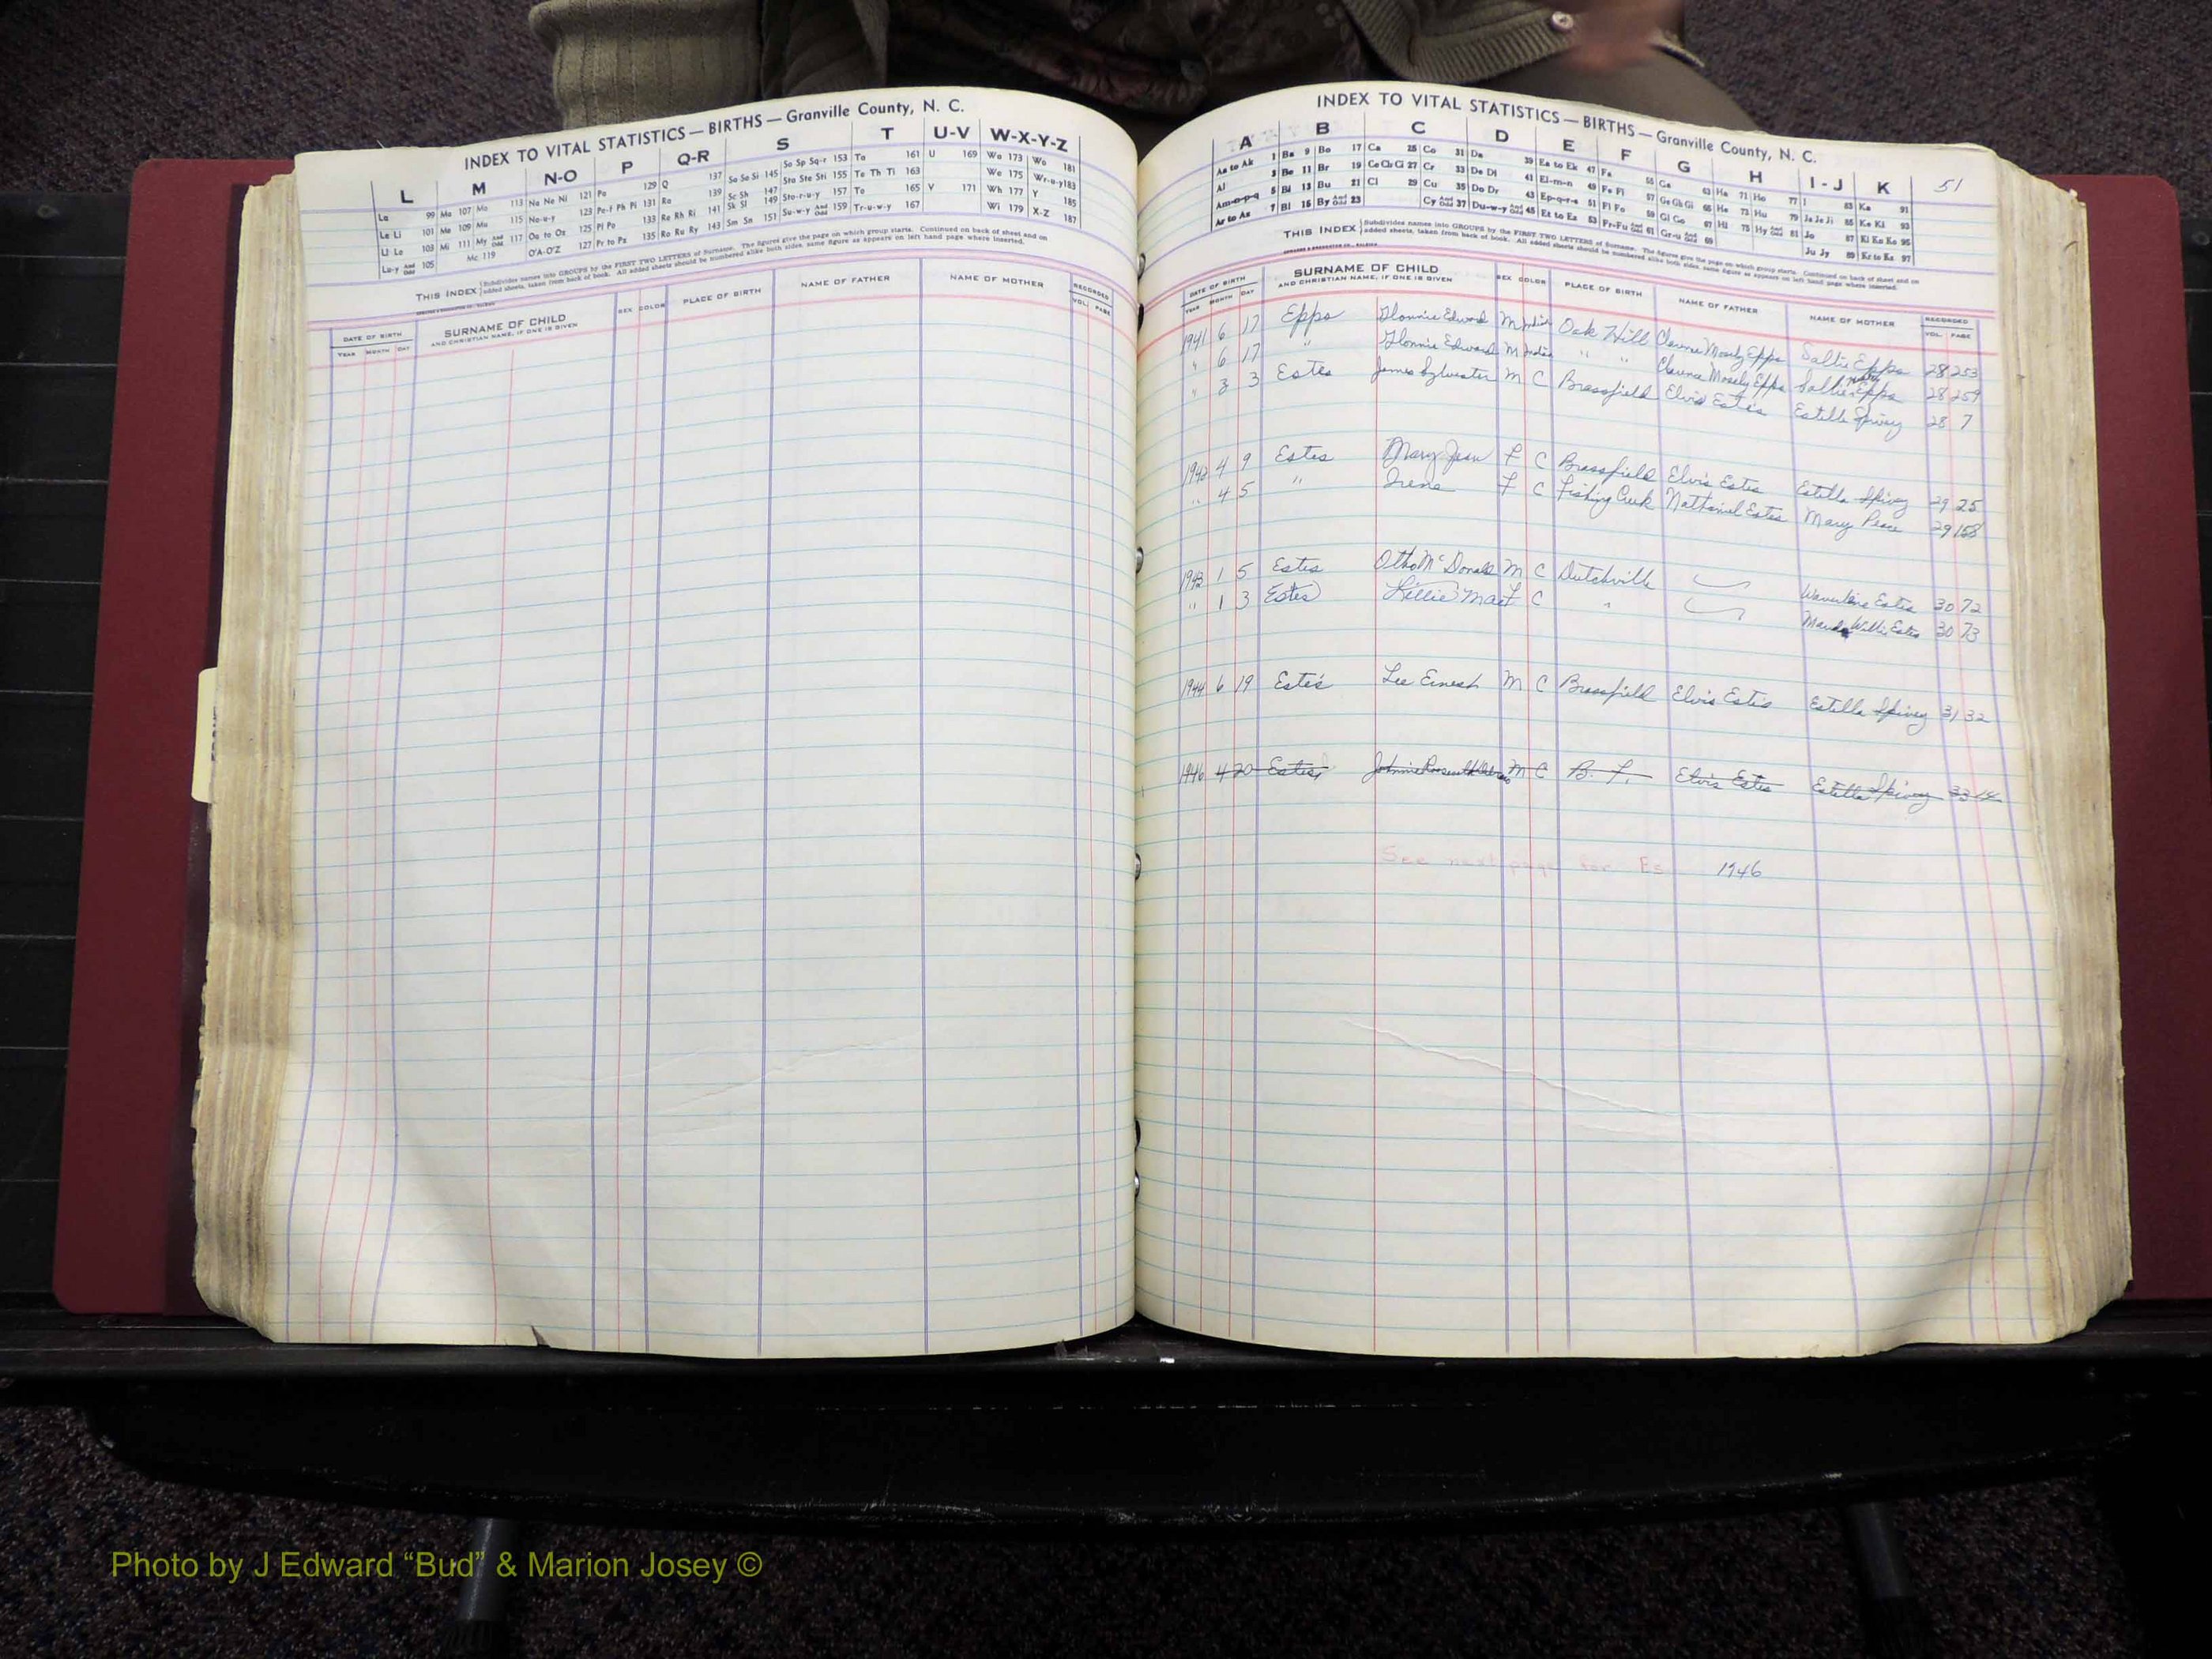 INDEX TO VITAL STATISTICS — BIRTHS — Granville County, N. C.
L M N-O P Q-R S T U-V W-X-Y-Z
La 99 Ma 107 Mo 113 Na Ne Ni 121 Pa 129 Q 137 Sa Se Si 145 So Sp Sq-r 153 Ta 161 U 169 Wa 173 Wo 181
Le Li 101 Me 109 Mu 115 No-u-y 123 Pe-f Ph Pi 131 Ra 139 Sc Sh 147 Sta Ste Sti 155 Te Th Ti 163 We 175 Wr-u-y 183
Ll Lo 103 Mi 111 My And Odd 117 Oa to Oz 125 Pl Po 133 Re Rh Ri 141 Sk Sl 149 Sto-r-u-y 157 To 165 V 171 Wh 177 Y 185
Lu-y And Odd 105 Mc 119 O'A-O'Z 127 Pr to Pz 135 Ro Ru Ry 143 Sm Sn 151 Su-w-y And Odd 159 Tr-u-w-y 167 Wi 179 X-Z 187
THIS INDEX Subdivides names into GROUPS by the FIRST TWO LETTERS of Surname. The figures give the page on which group starts. Continued on back of sheet and on
added sheets, taken from back of book. All added sheets should be numbered alike both sides, same figure as appears on left hand page where inserted.
DATE OF BIRTH SURNAME OF CHILD SEX COLOR PLACE OF BIRTH NAME OF FATHER NAME OF MOTHER RECORDED
YEAR MONTH DAY AND CHRISTIAN NAME, IF ONE IS GIVEN VOL. PAGE
INDEX TO VITAL STATISTICS — BIRTHS — Granville County, N. C.
A B C D E F G H I-J K 51
Aa to Ak 1 Ba 9 Bo 17 Ca 25 Co 31 Da 39 Ea to Ek 47 Fa 55 Ga 63 Ha 71 Ho 77 I 83 Ka 91
Al 3 Be 11 Br 19 Ce Ch Ci 27 Cr 33 De Di 41 El-m-n 49 Fe Fi 57 Ge Gh Gi 65 He 73 Hu 79 Ja Je Ji 85 Ke Kl 93
Am-o-p-q 5 Bi 13 Bu 21 Cl 29 Cu 35 Do Dr 43 Ep-q-r-s 51 Fl Fo 59 Gl Go 67 Hi 75 Hy And Odd 81 Jo 87 Ki Kn Ko 95
Ar to Az 7 Bl 15 By And Odd 23 Cy And Odd 37 Du-w-y And Odd 45 Et to Ez 53 Fr-Fu And Odd 61 Gr-u And Odd 69 Ju Jy 89 Kr to Kz 97
THIS INDEX Subdivides names into GROUPS by the FIRST TWO LETTERS of Surname. The figures give the page on which group starts. Continued on back of sheet and on
added sheets, taken from back of book. All added sheets should be numbered alike both sides, same figure as appears on left hand page where inserted.
DATE OF BIRTH SURNAME OF CHILD SEX COLOR PLACE OF BIRTH NAME OF FATHER NAME OF MOTHER RECORDED
YEAR MONTH DAY AND CHRISTIAN NAME, IF ONE IS GIVEN VOL. PAGE
1941 6 17 Epps Edward M Indian Oak Hill Clarence Mosely Epps Sallie Epps 28 253
" 6 17 " Edward M Indian " " Clarence Mosely Epps Sallie Epps 28 259
" 3 3 Estes James Sylvester M C Brassfield Elvis Estes Estelle Spivey 28 7
1942 4 9 Estes Mary Jean F C Brassfield Elvis Estes Estella Spivey 29 25
" 4 5 " Irene F C Fishing Creek Nathaniel Estes Mary Peace 29 158
1943 1 5 Estes Otho McDonald M C Dutchville Estes 30 72
" 1 3 Estes Lillie Mae F C " Willie Estes 30 73
1944 6 19 Estes Lee Ernest M C Brassfield Elvis Estes Estella Spivey 31 32
1946 4 20 Estes Johnnie M C B. F. Elvis Estes Estella Spivey 33
See next page for Es 1946
Photo by J Edward “Bud” & Marion Josey ©